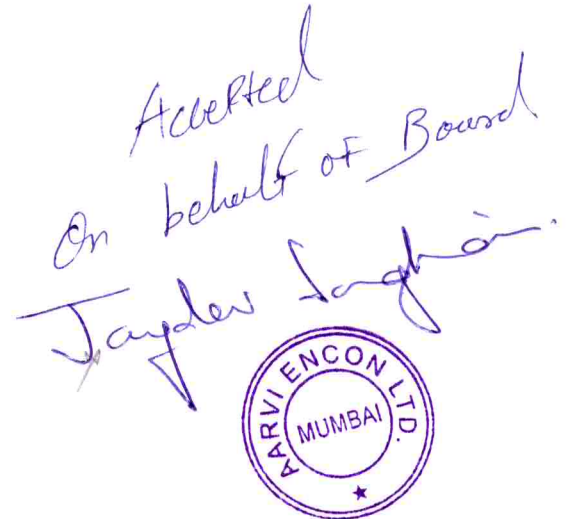 Accepted
On behalf of Board
Jaydev Sanghavi.
AARVI ENCON LTD.
MUMBAI